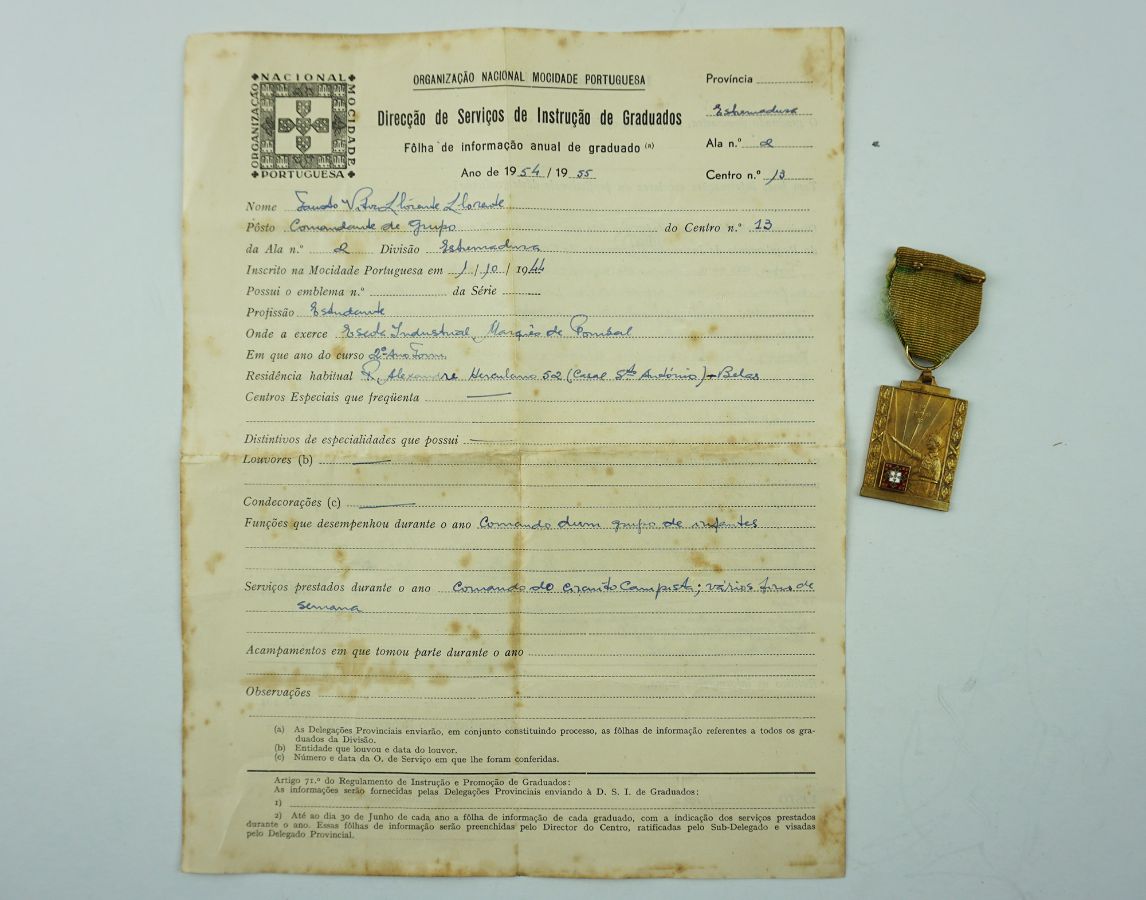 NACIONAL
ORGANIZAÇÃO
MOCIDADE
PORTUGUESA
ORGANIZAÇÃO NACIONAL MOCIDADE PORTUGUESA
Direcção de Serviços de Instrução de Graduados
Fôlha de informação anual de graduado (a)
Ano de 1954 / 1955
Província
Estremadura
Ala n.º 2
Centro n.º 13
Nome Fausto Llorente Llorente
Pôsto Comandante de Grupo do Centro n.º 13
da Ala n.º 2 Divisão Estremadura
Inscrito na Mocidade Portuguesa em 1 / 10 / 1944
Possui o emblema n.º da Série
Profissão Estudante
Onde a exerce Escola Industrial Marquês de Pombal
Em que ano do curso 2º Ano Form.
Residência habitual R. Alexandre Herculano 52 (Casal Stº António) - Belas
Centros Especiais que freqüenta
Distintivos de especialidades que possui
Louvores (b)
Condecorações (c)
Funções que desempenhou durante o ano Comando dum grupo de infantes
Serviços prestados durante o ano Comando do circuito Campista; vários fins de
semana
Acampamentos em que tomou parte durante o ano
Observações
(a) As Delegações Provinciais enviarão, em conjunto constituindo processo, as fôlhas de informação referentes a todos os gra-
duados da Divisão.
(b) Entidade que louvou e data do louvor.
(c) Número e data da O. de Serviço em que lhe foram conferidas.
Artigo 71.º do Regulamento de Instrução e Promoção de Graduados:
As informações serão fornecidas pelas Delegações Provinciais enviando à D. S. I. de Graduados:
1)
2) Até ao dia 30 de Junho de cada ano a fôlha de informação de cada graduado, com a indicação dos serviços prestados
durante o ano. Essas fôlhas de informação serão preenchidas pelo Director do Centro, ratificadas pelo Sub-Delegado e visadas
pelo Delegado Provincial.